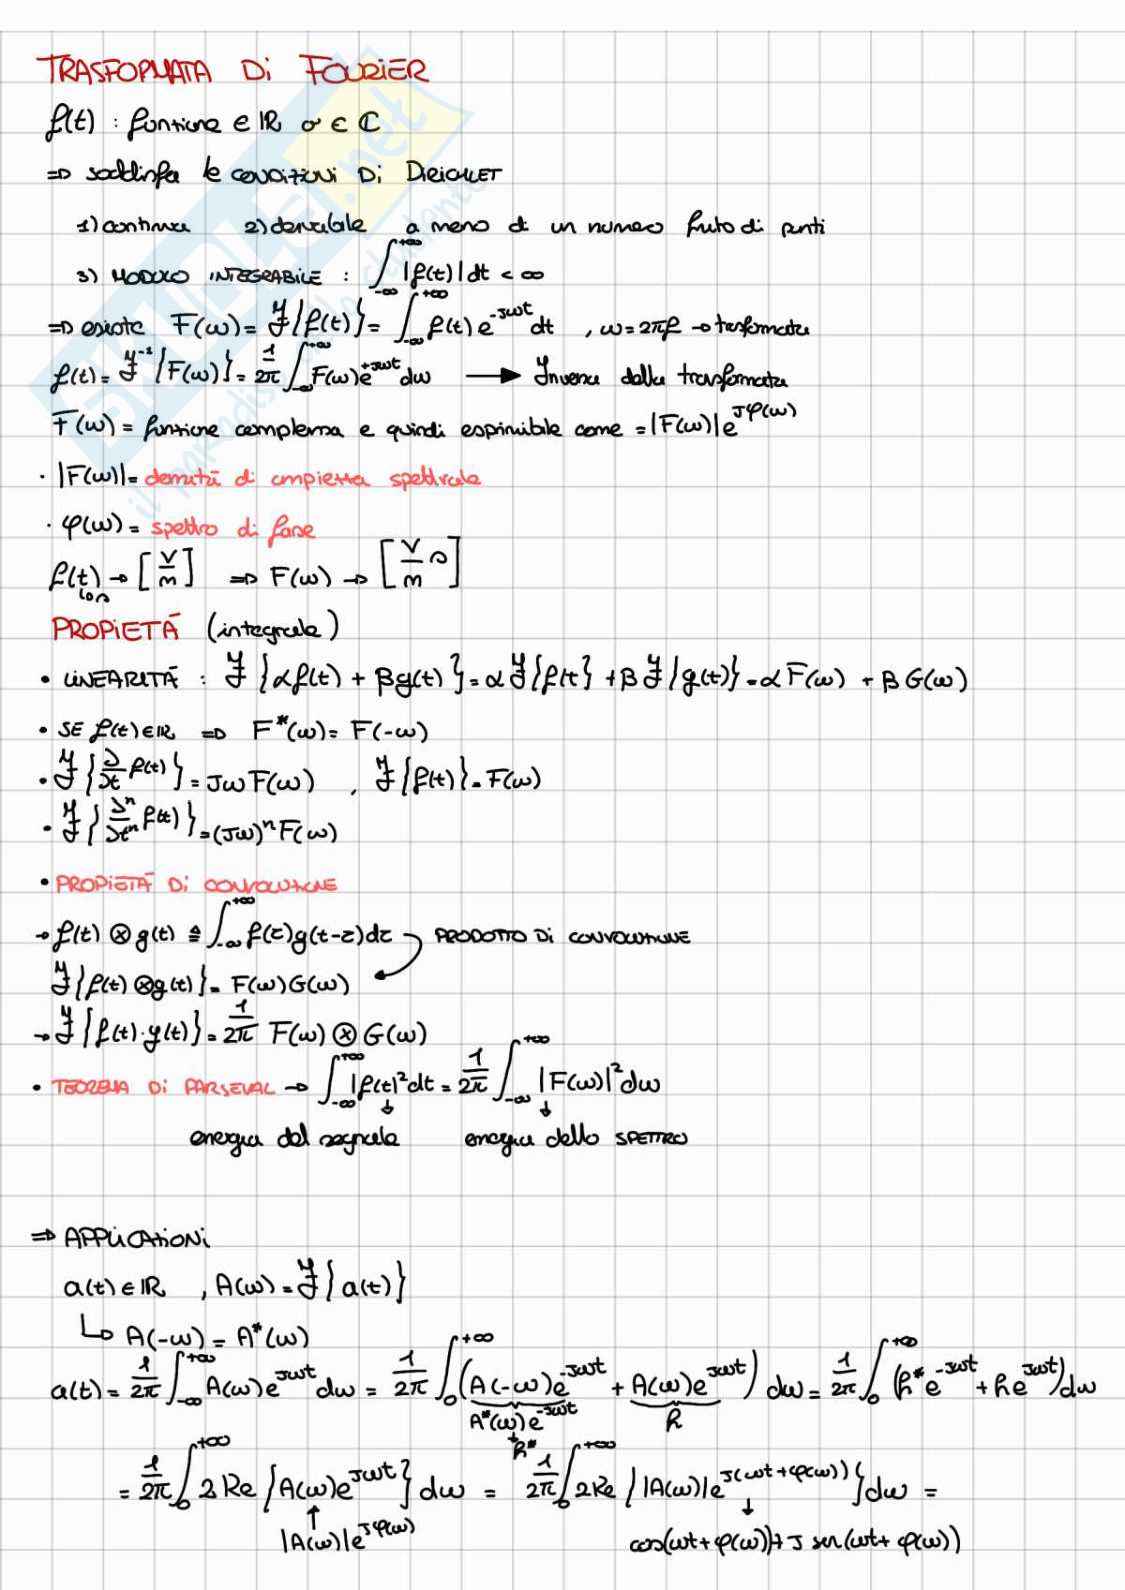 TRASFORMATA Di FOURIER
f(t) : funzione ∈ ℝ o ∈ ℂ
=> soddisfa le condizioni Di DIRICHLET
1) continua 2) derivabile a meno di un numero finito di punti
3) MODULO INTEGRABILE : ∫_{-∞}^{+∞} |f(t)| dt < ∞
=> esiste F(ω) = ℱ{f(t)} = ∫_{-∞}^{+∞} f(t) e^{-Jωt} dt , ω = 2πf → trasformata
f(t) = ℱ^{-1}{F(ω)} = 1/2π ∫_{-∞}^{+∞} F(ω) e^{+Jωt} dω → Inversa della trasformata
F(ω) = funzione complessa e quindi esprimibile come = |F(ω)| e^{Jφ(ω)}
· |F(ω)| = densità di ampiezza spettrale
· φ(ω) = spettro di fase
f(t) → [V/m] => F(ω) → [V/m s]
PROPIETÀ (integrale)
• LINEARITÀ : ℱ{αf(t) + βg(t)} = αℱ{f(t} + βℱ{g(t)} = αF(ω) + βG(ω)
• SE f(t) ∈ ℝ => F*(ω) = F(-ω)
• ℱ{∂/∂t f(t)} = JωF(ω) , ℱ{f(t)} = F(ω)
• ℱ{∂^n/∂t^n f(t)} = (Jω)^n F(ω)
• PROPIETÀ Di CONVOLUZIONE
→ f(t) ⊗ g(t) ≜ ∫_{-∞}^{+∞} f(τ)g(t-τ)dτ PRODOTTO Di CONVOLUZIONE
ℱ{f(t) ⊗ g(t)} = F(ω)G(ω)
→ ℱ{f(t)·g(t)} = 1/2π F(ω) ⊗ G(ω)
• TEOREMA Di PARSEVAL → ∫_{-∞}^{+∞} |f(t)|² dt = 1/2π ∫_{-∞}^{+∞} |F(ω)|² dω
energia del segnale energia dello SPETTRO
=> APPLICAZIONi
a(t) ∈ ℝ , A(ω) = ℱ{a(t)}
↳ A(-ω) = A*(ω)
a(t) = 1/2π ∫_{-∞}^{+∞} A(ω)e^{Jωt} dω = 1/2π ∫_0^{+∞} (A(-ω)e^{-Jωt} + A(ω)e^{Jωt}) dω = 1/2π ∫_0^{+∞} (h* e^{-Jωt} + h e^{Jωt}) dω
A*(ω)e^{-Jωt} h
h*
= 1/2π ∫_0^{+∞} 2 Re {A(ω)e^{Jωt}} dω = 1/2π ∫_0^{+∞} 2Re {|A(ω)|e^{J(ωt+φ(ω))}} dω =
|A(ω)|e^{Jφ(ω)} cos(ωt + φ(ω)) + J sen(ωt + φ(ω))